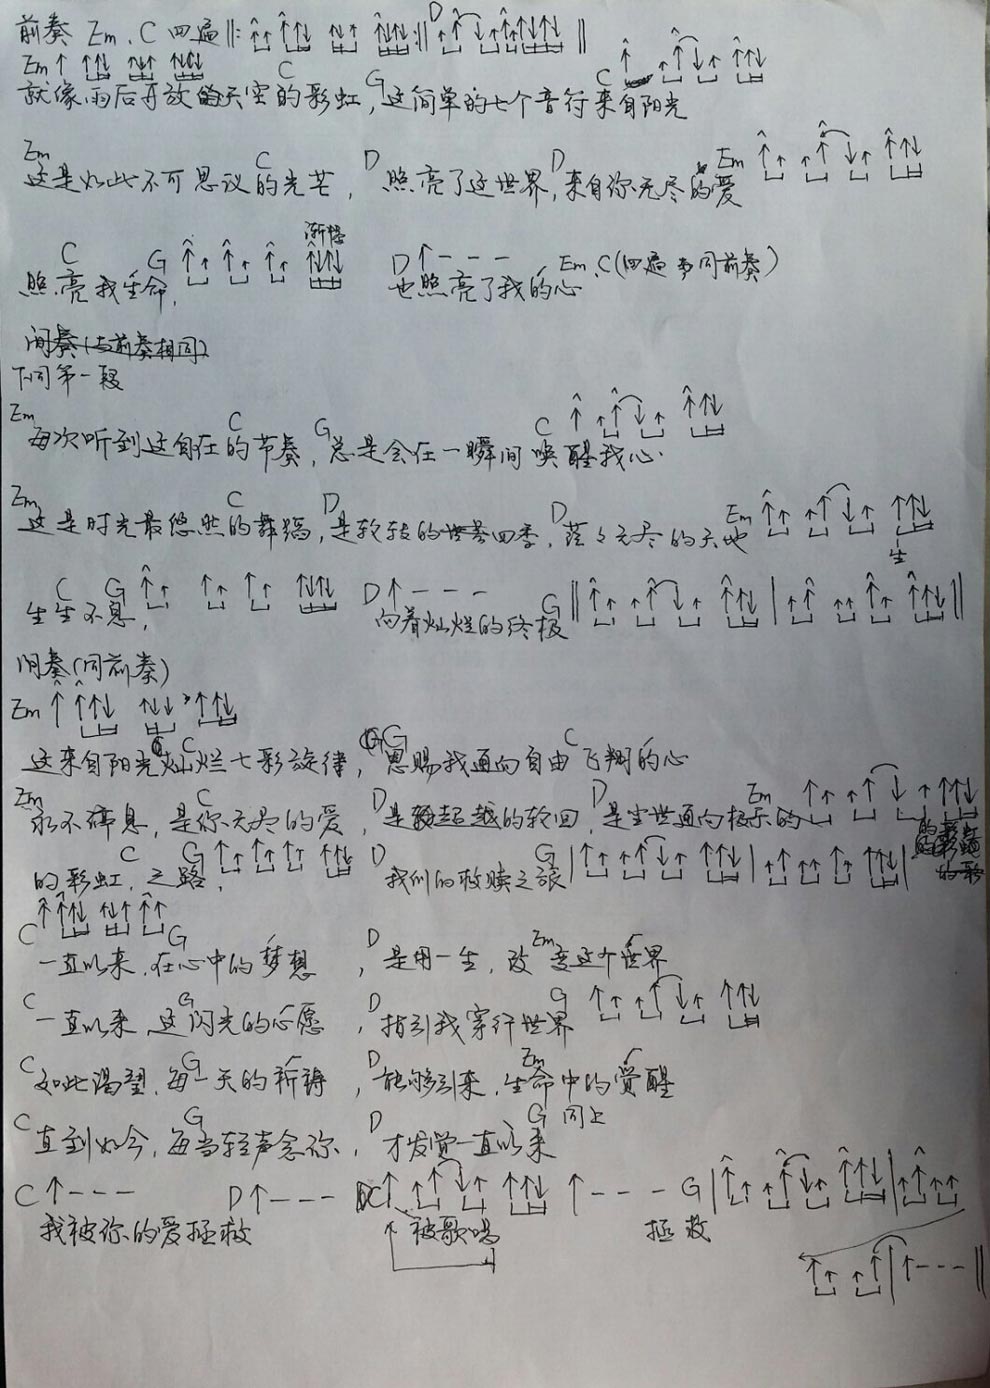 前奏 Em、C 四遍 D
Em C C
就像雨后开放的天空的彩虹, G 这简单的七个音符来自阳光
Em C D D Em
这是如此不可思议的光芒, 照亮了这世界, 来自你无尽的爱
C G 渐强 D Em、C(四遍 同前奏)
照亮我生命, 也照亮了我的心
间奏(与前奏相同)
下同第一段
Em C G C
每次听到这自在的节奏, 总是会在一瞬间唤醒我心
Em C D D Em
这是时光最悠然的舞蹈, 是的四季, 无尽的天地
生
C G D G
生生不息, 向着灿烂的终极
间奏(同前奏)
Em
C G C
这来自阳光灿烂七彩旋律, 恩赐我通向自由飞翔的心
Em C D D Em
永不停息, 是你无尽的爱, 是超越的轮回, 是尘世通向极乐的
C G D G
的彩虹, 之路, 我们的救赎之旅
C G D Em
一直以来, 在心中的梦想, 是用一生, 改变这个世界
C G D G
一直以来 这闪光的心愿, 指引我穿行世界
C G D Em
如此渴望, 每一天的祈祷, 能够引来, 生命中的觉醒
C G D G 同上
直到如今, 每当轻声念你, 才发觉一直以来
C --- D --- C --- G
我被你的爱拯救 被歌唱 拯救